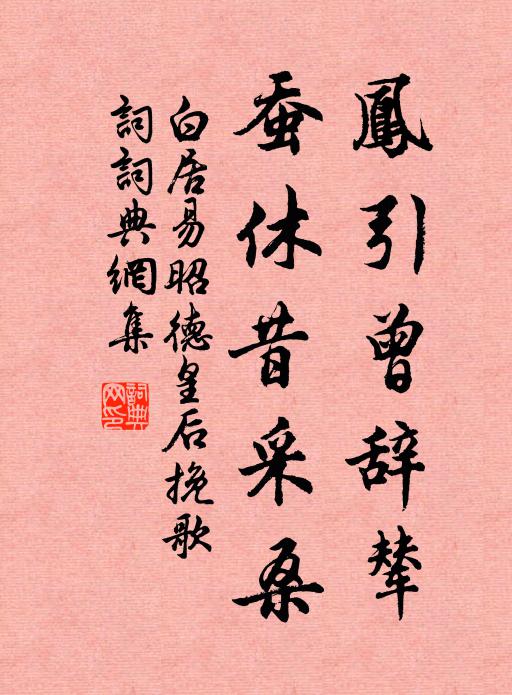 鳳引曾辞輦
蚕休昔采桑
白居易昭德皇后挽歌
詞詞典網集
詞典网印